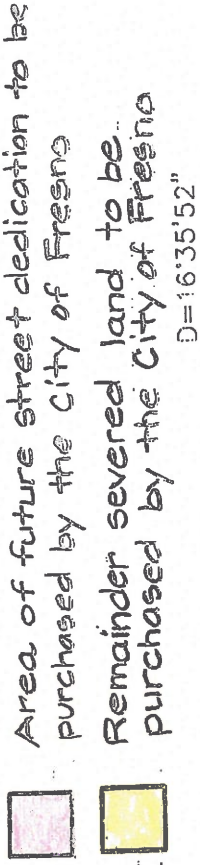 Area of future street dedication to be
purchased by the City of Fresno
Remainder severed land to be
purchased by the City of Fresno
D=16°35'52"